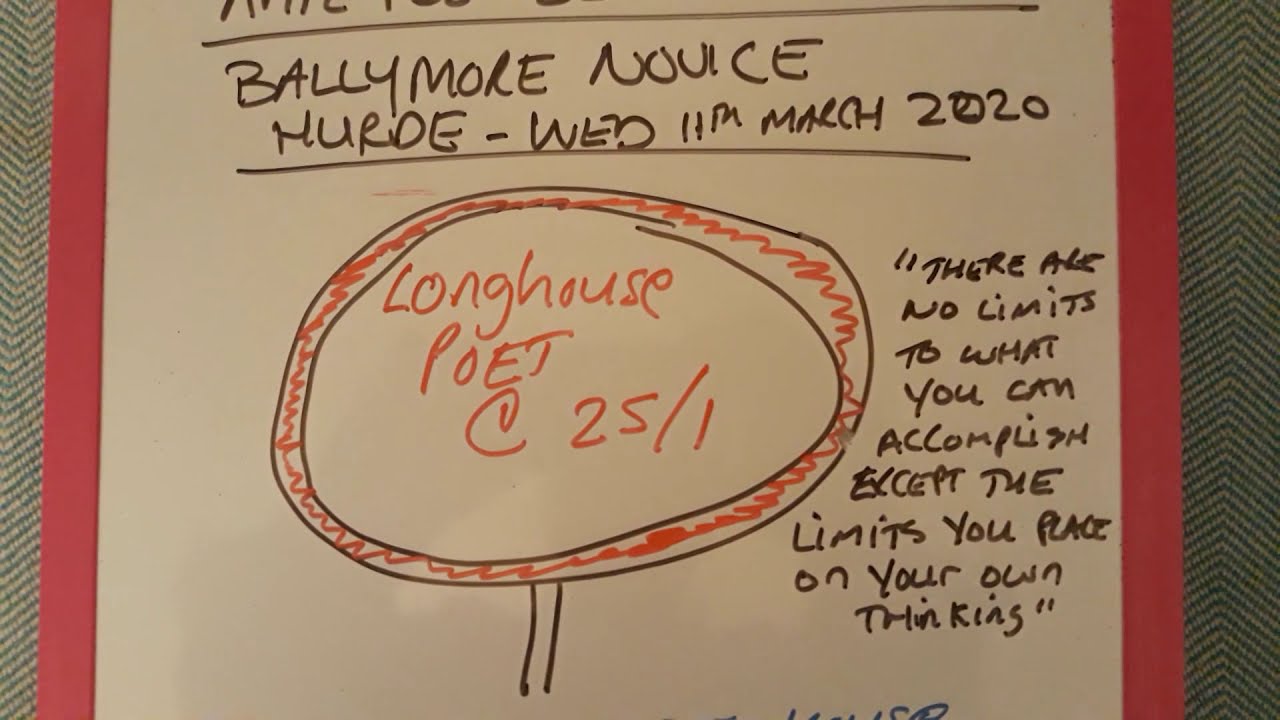 BALLYMORE NOVICE
HURDE - WED 11TH MARCH 2020
Longhouse
POET
@ 25/1
"THERE ARE
NO LIMITS
TO WHAT
YOU CAN
ACCOMPLISH
EXCEPT THE
LIMITS YOU PLACE
ON YOUR OWN
THINKING"